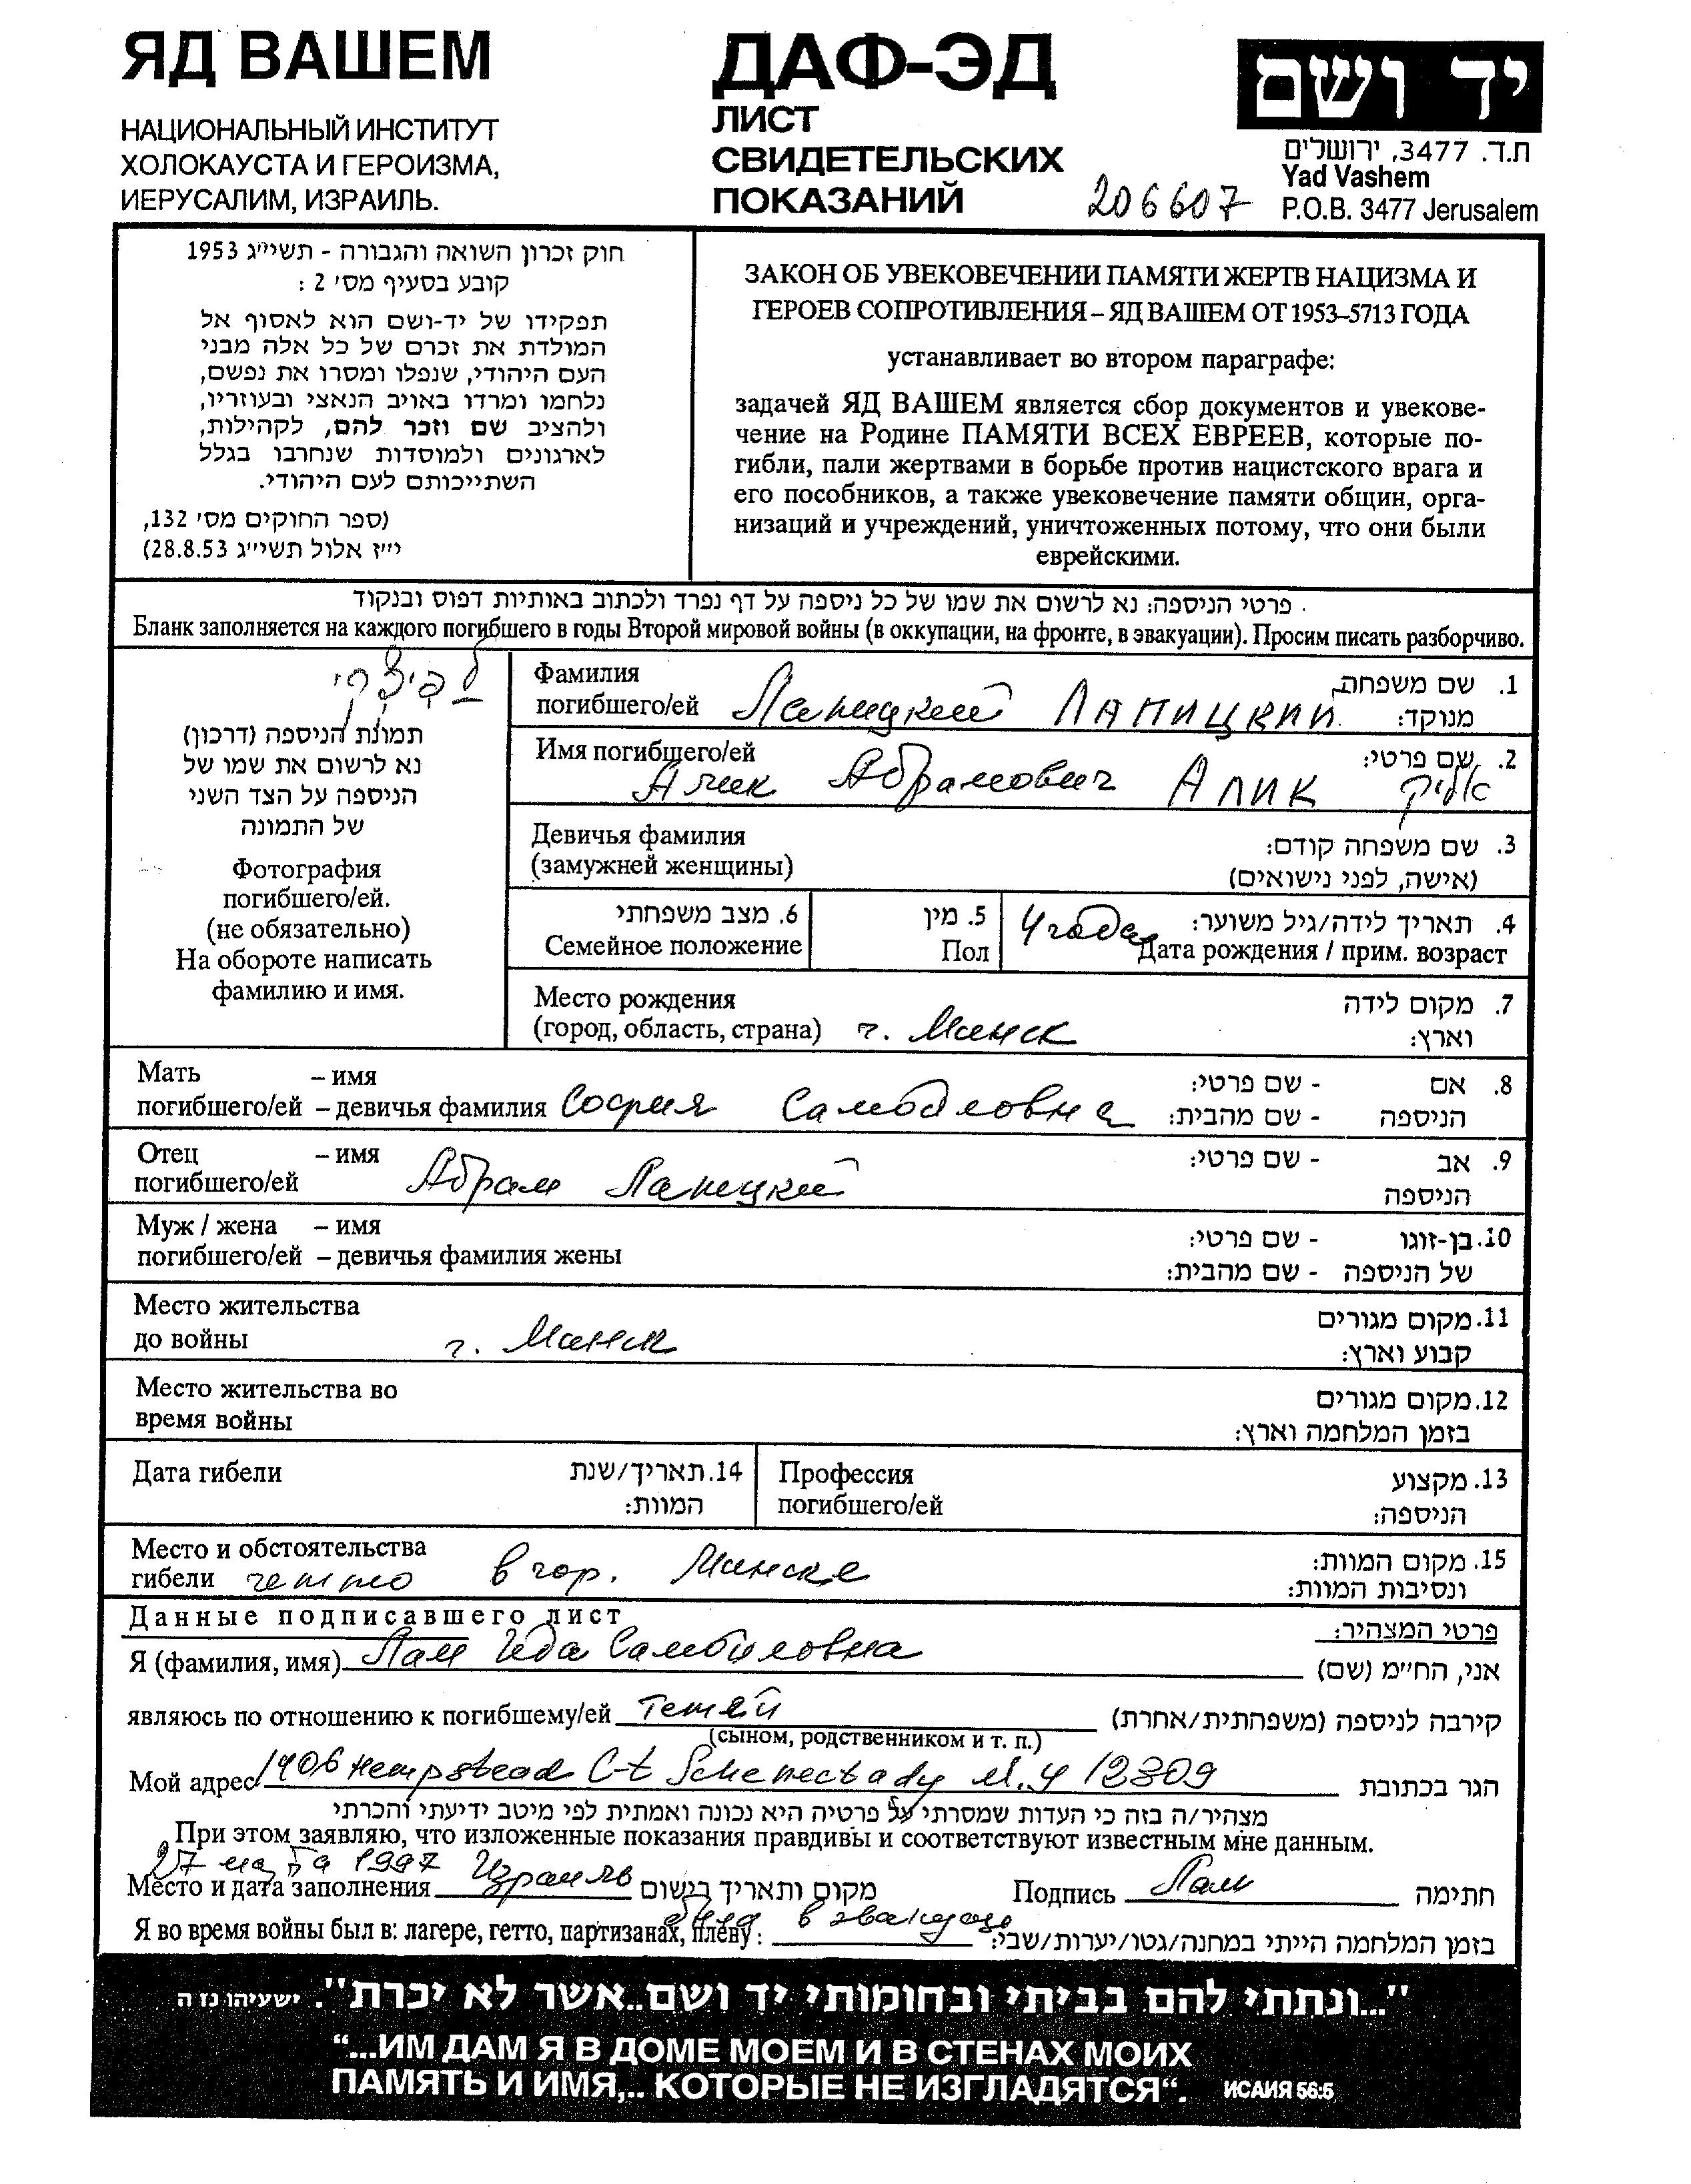 ЯД ВАШЕМ
НАЦИОНАЛЬНЫЙ ИНСТИТУТ
ХОЛОКАУСТА И ГЕРОИЗМА,
ИЕРУСАЛИМ, ИЗРАИЛЬ.
ДАФ-ЭД
ЛИСТ
СВИДЕТЕЛЬСКИХ
ПОКАЗАНИЙ
206607
יד ושם
ת.ד. 3477, ירושלים
Yad Vashem
P.O.B. 3477 Jerusalem
חוק זכרון השואה והגבורה - תשי״ג 1953
קובע בסעיף מס׳ 2 :
תפקידו של יד-ושם הוא לאסוף אל
המולדת את זכרם של כל אלה מבני
העם היהודי, שנפלו ומסרו את נפשם,
נלחמו ומרדו באויב הנאצי ובעוזריו,
ולהציב שם וזכר להם, לקהילות,
לארגונים ולמוסדות שנחרבו בגלל
השתייכותם לעם היהודי.
(ספר החוקים מס׳ 132,
י״ז אלול תשי״ג 28.8.53)
ЗАКОН ОБ УВЕКОВЕЧЕНИИ ПАМЯТИ ЖЕРТВ НАЦИЗМА И
ГЕРОЕВ СОПРОТИВЛЕНИЯ – ЯД ВАШЕМ ОТ 1953–5713 ГОДА
устанавливает во втором параграфе:
задачей ЯД ВАШЕМ является сбор документов и увекове-
чение на Родине ПАМЯТИ ВСЕХ ЕВРЕЕВ, которые по-
гибли, пали жертвами в борьбе против нацистского врага и
его пособников, а также увековечение памяти общин, орга-
низаций и учреждений, уничтоженных потому, что они были
еврейскими.
פרטי הניספה: נא לרשום את שמו של כל ניספה על דף נפרד ולכתוב באותיות דפוס ובנקוד
Бланк заполняется на каждого погибшего в годы Второй мировой войны (в оккупации, на фронте, в эвакуации). Просим писать разборчиво.
תמונת הניספה (דרכון)
נא לרשום את שמו של
הניספה על הצד השני
של התמונה
Фотография
погибшего/ей.
(не обязательно)
На обороте написать
фамилию и имя.
Фамилия 1. שם משפחה
погибшего/ей Лапицкий ЛАПИЦКИЙ מנוקד:
Имя погибщего/ей 2. שם פרטי:
Алик Абрамович Алик אליק
Девичья фамилия 3. שם משפחה קודם:
(замужней женщины) (אישה, לפני נישואים)
6. מצב משפחתי 5. מין 4 года 4. תאריך לידה/גיל משוער:
Семейное положение Пол Дата рождения / прим. возраст
Место рождения 7. מקום לידה
(город, область, страна) г. Минск וארץ:
Мать – имя 8. אם - שם פרטי:
погибшего/ей – девичья фамилия София Самойловна הניספה - שם מהבית:
Отец – имя 9. אב - שם פרטי:
погибшего/ей Абрам Лапицкий הניספה
Муж / жена – имя 10. בן-זוגו - שם פרטי:
погибшего/ей – девичья фамилия жены של הניספה - שם מהבית:
Место жительства 11. מקום מגורים
до войны г. Минск קבוע וארץ:
Место жительства во 12. מקום מגורים
время войны בזמן המלחמה וארץ:
Дата гибели 14. תאריך/שנת Профессия 13. מקצוע
המוות: погибшего/ей הניספה:
Место и обстоятельства 15. מקום המוות:
гибели гетто в гор. Минске ונסיבות המוות:
Данные подписавшего лист פרטי המצהיר:
Я (фамилия, имя) Лам Ида Самойловна אני, הח״מ (שם)
являюсь по отношению к погибшему/ей Тетей קירבה לניספה (משפחתית/אחרת)
(сыном, родственником и т. п.)
Мой адрес 1406 Hempstead Ct Schenectady N.Y 12309 הגר בכתובת
מצהיר/ה בזה כי העדות שמסרתי על פרטיה היא נכונה ואמתית לפי מיטב ידיעתי והכרתי
При этом заявляю, что изложенные показания правдивы и соответствуют известным мне данным.
27 марта 1997
Место и дата заполнения Израиль מקום ותאריך רישום Подпись Лам חתימה
Я во время войны был в: лагере, гетто, партизанах, плену: была в эвакуации בזמן המלחמה הייתי במחנה/גטו/יערות/שבי:
"...ונתתי להם בביתי ובחומותי יד ושם..אשר לא יכרת". ישעיהו נז ה
“...ИМ ДАМ Я В ДОМЕ МОЕМ И В СТЕНАХ МОИХ
ПАМЯТЬ И ИМЯ,.. КОТОРЫЕ НЕ ИЗГЛАДЯТСЯ“. ИСАИЯ 56:5